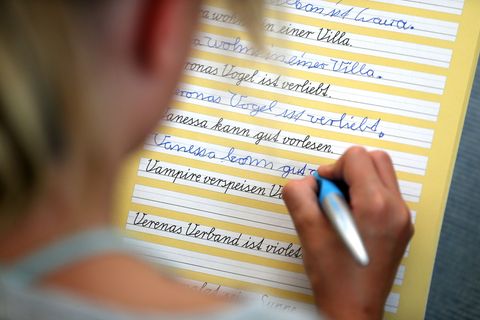 ist Lara.
wohnt in einer Villa.
wohnt in einer Villa.
Vogel ist verliebt.
Vogel ist verliebt.
Vanessa kann gut vorlesen.
Vanessa kann gut
Vampire verspeisen
Verenas Verband ist violett